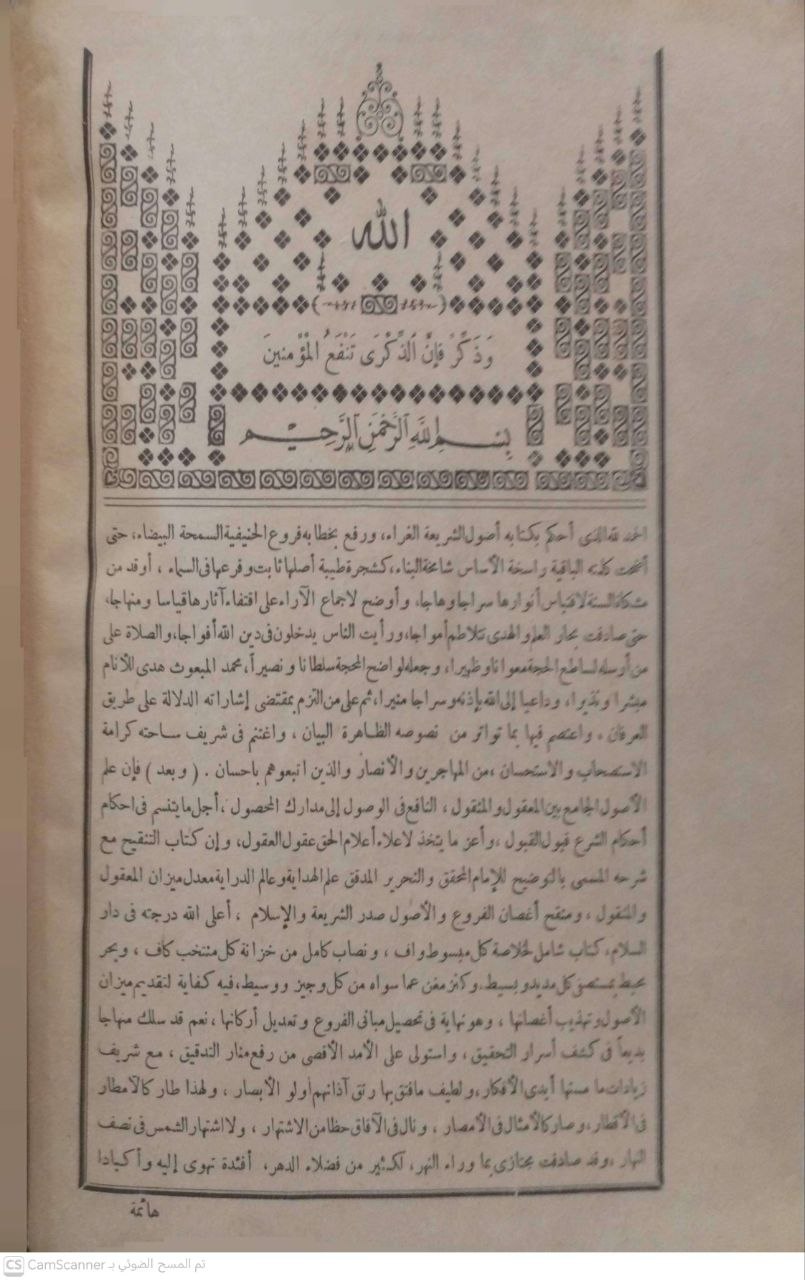 الله
وَذَكِّرْ فَإِنَّ الذِّكْرَى تَنْفَعُ الْمُؤْمِنِينَ
بِسْمِ اللَّهِ الرَّحْمَنِ الرَّحِيمِ
الحمد لله الذى أحكم بكتابه أصول الشريعة الغراء، ورفع بخطابه فروع الحنيفية السمحة البيضاء، حتى
أضحت كلمته الباقية راسخة الأساس شامخة البناء، كشجرة طيبة أصلها ثابت وفرعها فى السماء ، أوقد من
مشكاة السنة لاقتباس أنوارها سراجا وهاجا، وأوضح لاجماع الآراء على اقتفاء آثارها قياسا ومنهاجا،
حتى صادفت بحار العلم والهدى تتلاطم أمواجا، ورأيت الناس يدخلون فى دين الله أفواجا، والصلاة على
من أرسله لساطع الحجة معوانا وظهيرا، وجعله لواضح المحجة سلطانا ونصيراً، محمد المبعوث هدى للأنام
مبشرا ونذيرا، وداعيا إلى الله بإذنه وسراجا منيرا، ثم على من التزم بمقتضى إشاراته الدلالة على طريق
العرفان ، واعتصم فيها بما تواتر من نصوصه الظاهرة البيان ، واغتنم فى شريف ساحته كرامة
الاستصحاب والاستحسان ،من المهاجرين والأنصار والذين اتبعوهم باحسان . ( وبعد ) فإن علم
الأصول الجامع بين المعقول والمنقول ، النافع فى الوصول إلى مدارك المحصول ، أجل ما يتنسم فى احكام
أحكام الشرع قبول القبول ،وأعز ما يتخذ لاعلاء أعلام الحق عقول العقول، وإن كتاب التنقيح مع
شرحه المسمى بالتوضيح للإمام المحقق والنحرير المدقق علم الهداية وعالم الدراية معدل ميزان المعقول
والمنقول ، ومنقح أغصان الفروع والأصول صدر الشريعة والإسلام ، أعلى الله درجته فى دار
السلام، كتاب شامل لخلاصة كل مبسوط واف ، ونصاب كامل من خزانة كل منتخب كاف ، وبحر
محيط بمستصفى كل مديد وبسيط، وكنز مغن عما سواه من كل وجيز ووسيط، فيه كفاية لتقديم ميزان
الأصول وتهذيب أغصانها ، وهو نهاية فى تحصيل مبانى الفروع وتعديل أركانها، نعم قد سلك منهاجا
بديعاً فى كشف أسرار التحقيق ، واستولى على الأمد الأقصى من رفع منار التدقيق ، مع شريف
زيادات ما مستها أيدى الأفكار، ولطيف ما فتق بها رتق آذانهم أولو الأبصار ، ولهذا طار كالأمطار
فى الأقطار، وصار كالأمثال فى الأمصار ، ونال فى الآفاق حظا من الاشتهار ، ولا اشتهار الشمس فى نصف
النهار ،وقد صادفت مجتازى بما وراء النهر، لكثير من فضلاء الدهر، أفئدة تهوى إليه وأكبادا
هائمة
CS CamScanner تم المسح الضوئي بـ